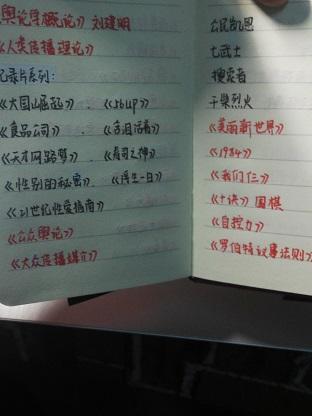 舆论学概论》 刘建明
《人类传播理论》
纪录片系列：
《大国崛起》、《56up》
《食品公司》、《舌活着》
《天才网路梦》、《寿司之神》
《性别的秘密》、《浮生一日》
《21世纪性爱指南》
《公众舆论》
《大众传播媒介》
公民凯恩
七武士
搜索者
干柴烈火
《美丽新世界》
《1984》
《我们仨》
《十诀》围棋
《自控力》
《罗伯特议事法则》